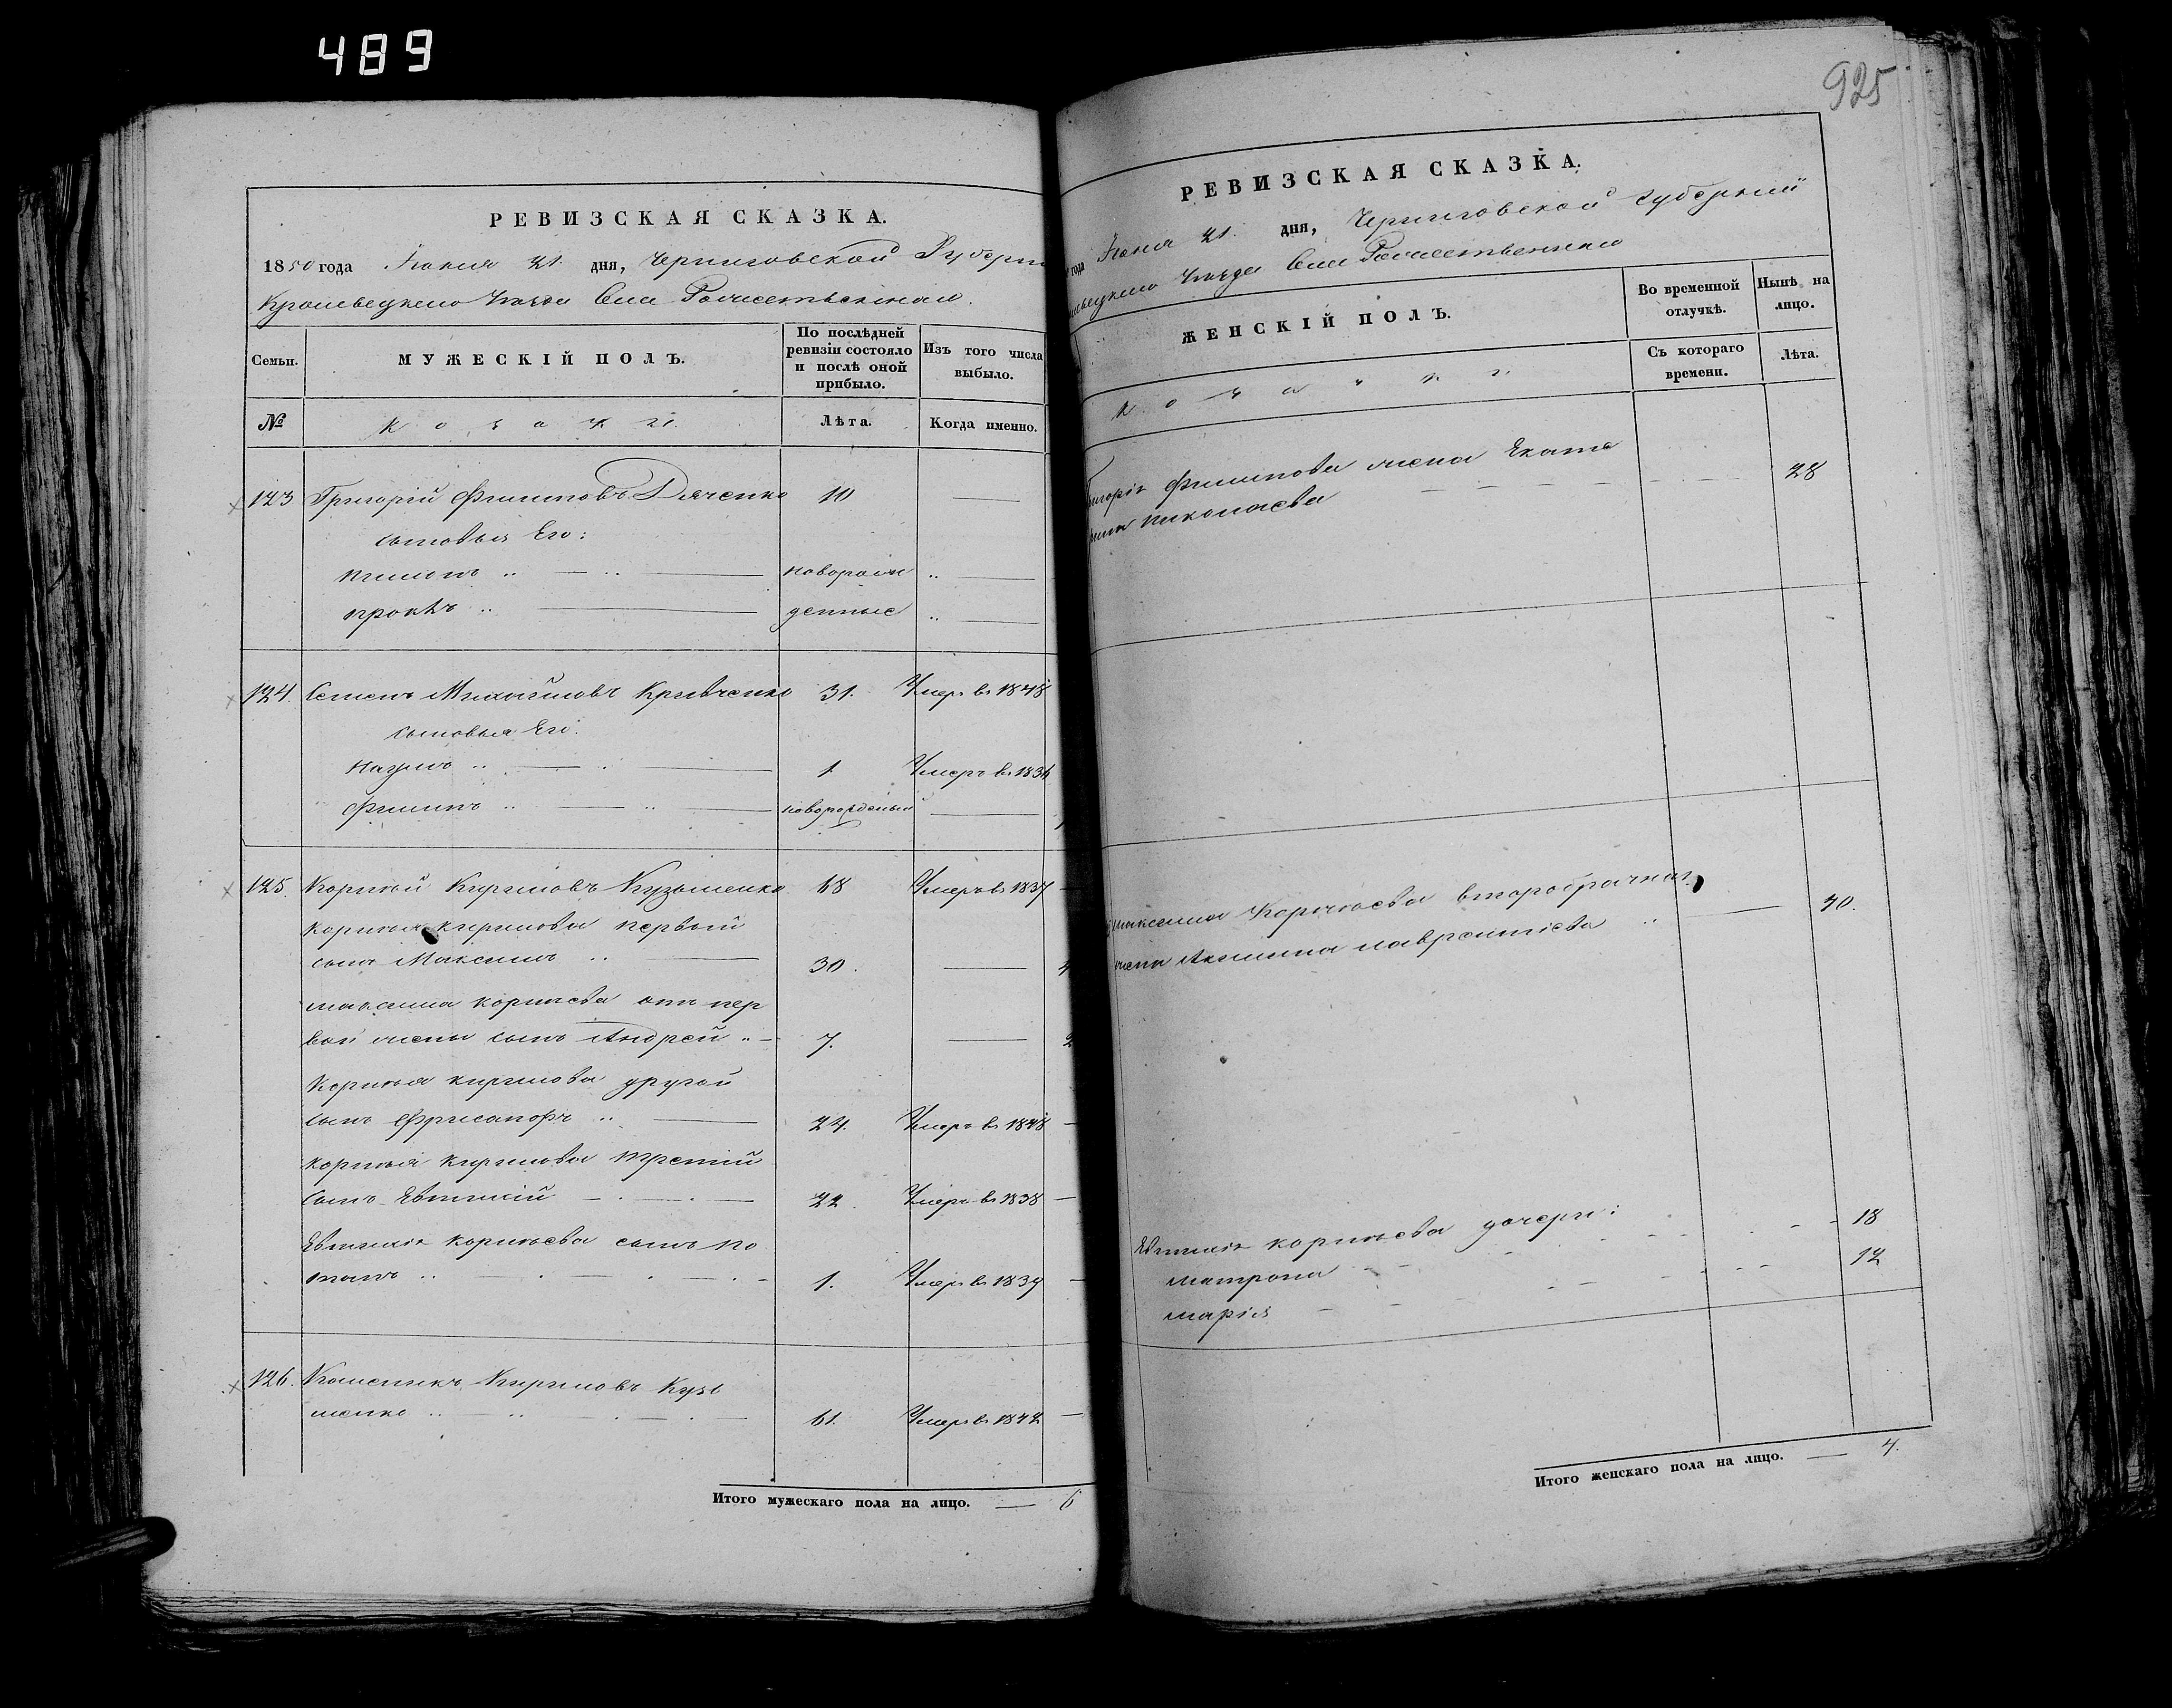 489
925
РЕВИЗСКАЯ СКАЗКА.
1850 года Іюня 21 дня, Черниговской Губерн
Кролевецкаго Уѣзда Села Рожественскаго.
Семьи.
МУЖЕСКІЙ ПОЛЪ.
По послѣдней ревизіи состояло и послѣ оной прибыло.
Изъ того числа выбыло.
№
Козаки.
Лѣта.
Когда именно.
123 Григорій Филиповъ Дяченко 10
сыновья Его:
новорож
прокъ денные
124. Семенъ Михайловъ Кривченко 31. Умеръ въ 1848
сыновья Его:
Наумъ 1 Умеръ въ 1836
Филипъ новорожденый
125. Корній Кириловъ Кузьменко 68 Умеръ въ 1837
Корнія Кирилова первый
сынъ Максимъ 30.
максима корніева отъ пер
вой жены сынъ Андрей 7.
Корнія кирилова другой
сынъ 24. Умеръ въ 1848
корнія кирилова третій
сынъ Евтихій 22. Умеръ въ 1838
Евтихія корніева сынъ По
тапъ 1. Умеръ въ 1839
126. Кириловъ Кузь
менко 61. Умеръ въ 1844
Итого мужескаго пола на лицо. 6
РЕВИЗСКАЯ СКАЗКА.
года Іюня 21. дня, Черниговской Губерніи
Уѣзда Села Рожественскаго
ЖЕНСКІЙ ПОЛЪ.
Во временной отлучкѣ.
Нынѣ на лицо.
Козачки.
Съ котораго времени.
Лѣта.
Григорія Филипова жена Екате
рина николаева 28
максима Корніева второбрачная
жена Акилина лаврентіева 40.
Евтихія корніева дочери:
матрона 18
марія 12
Итого женскаго пола на лицо. 4.